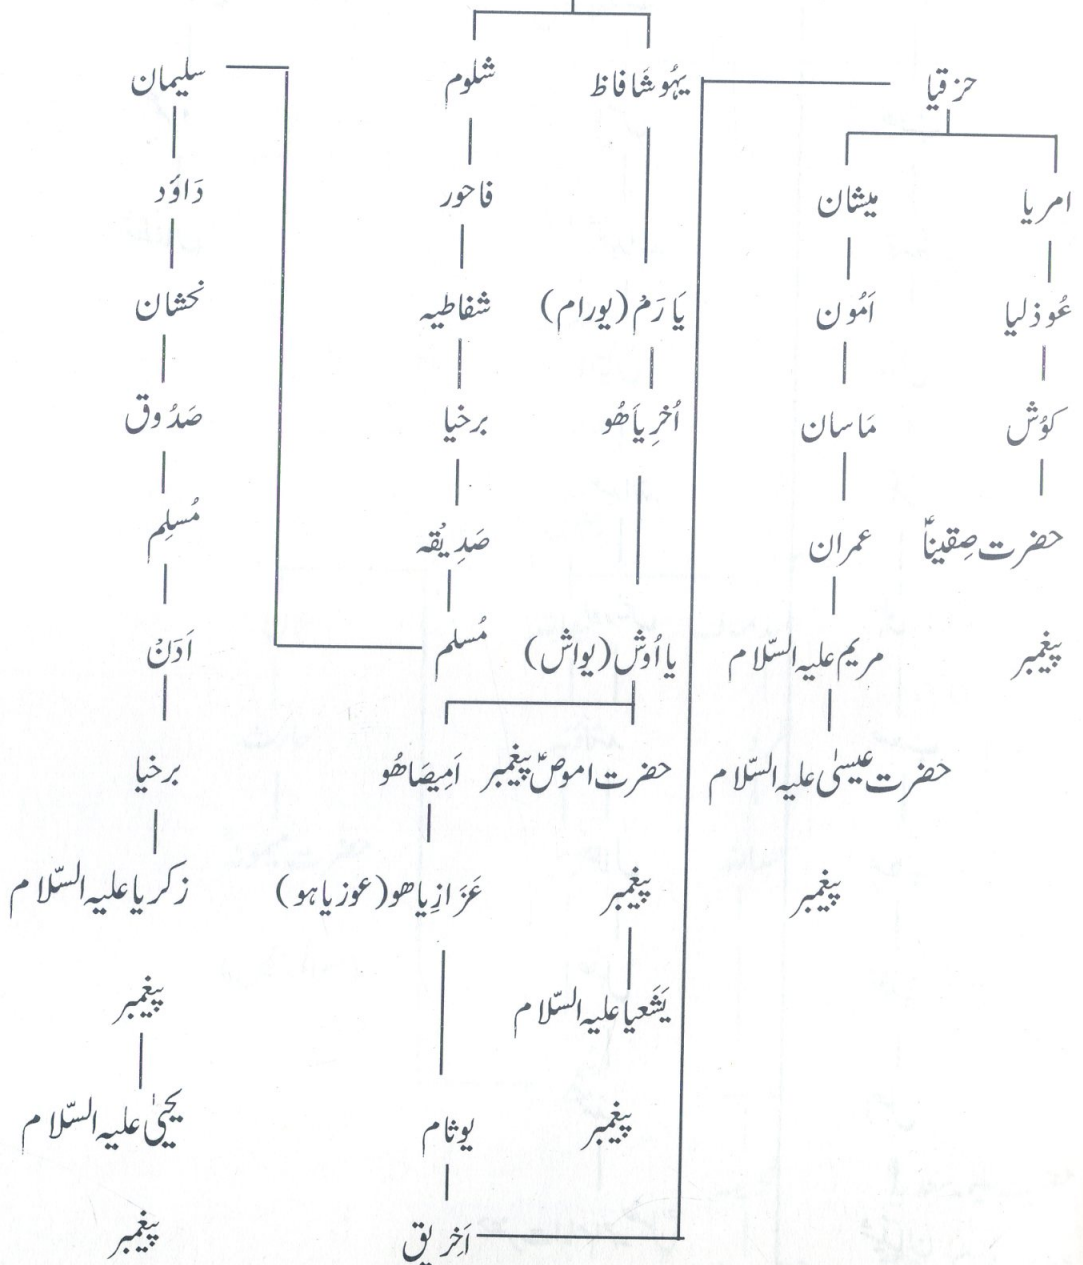 حزقیا
امریا
عُوذلیا
کوُش
حضرت صِقیناؑ
پیغمبر
میشان
اَمُون
مَاسان
عمران
مریم علیہ السّلام
حضرت عیسیٰ علیہ السّلام
پیغمبر
یہُوشَافاظ
یَا رَمْ (یورام)
اُخرِیاَھُو
یا اُوش (یواش)
حضرت اموصؑ پیغمبر
پیغمبر
یَشَعیا علیہ السّلام
پیغمبر
شلوم
فاحور
شفاطیہ
برخیا
صَدِیْقہ
مُسلم
اَمِیصَاھُو
عَزَازِیاھو (عوزیاہو)
یوثام
اَخریق
سلیمان
دَاؤد
نحشان
صَدُوق
مُسلِم
اَدَنْ
برخیا
زکریا علیہ السّلام
پیغمبر
یحییٰ علیہ السّلام
پیغمبر